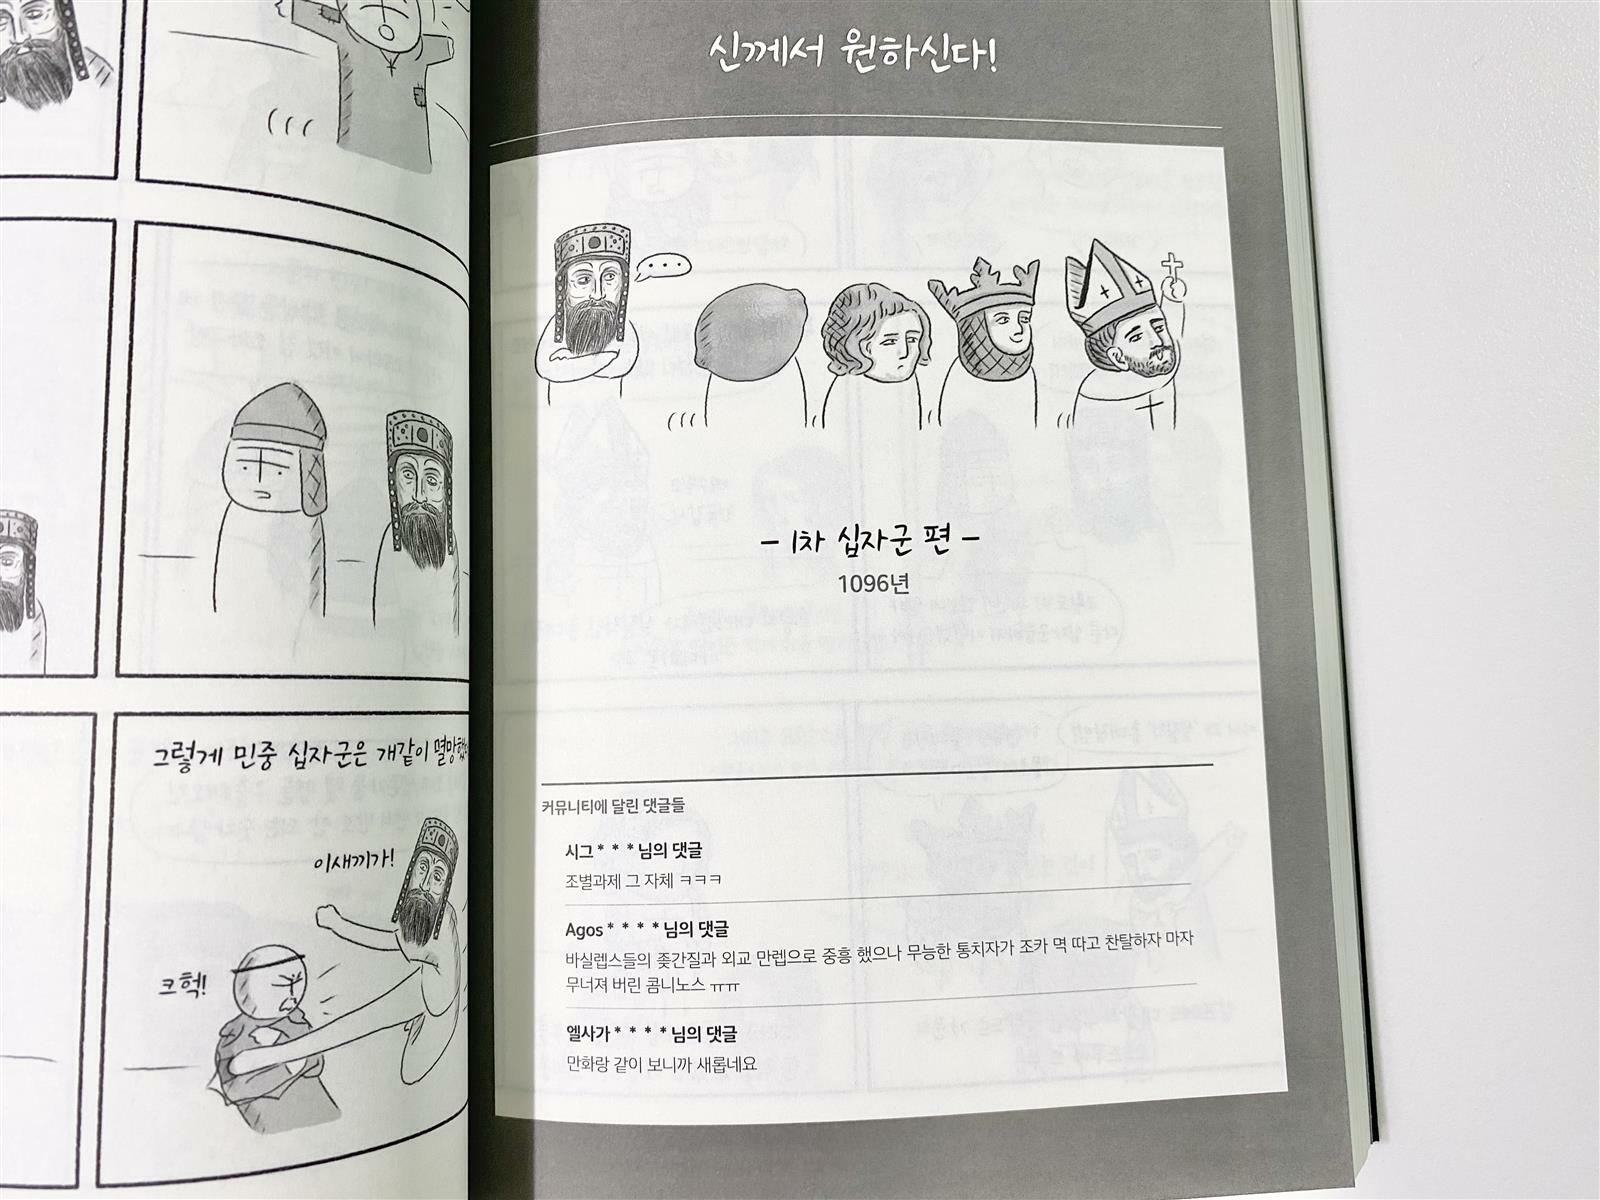 그렇게 민중 십자군은 개같이 멸망했
이새끼가!
크헉!
신께서 원하신다!
...
- 1차 십자군 편 -
1096년
커뮤니티에 달린 댓글들
시그* * *님의 댓글
조별과제 그 자체 ㅋㅋㅋ
Agos* * * *님의 댓글
바실렙스들의 줒간질과 외교 만렙으로 중흥 했으나 무능한 통치자가 조카 멱 따고 찬탈하자 마자
무너져 버린 콤니노스 ㅠㅠ
엘사가* * * *님의 댓글
만화랑 같이 보니까 새롭네요